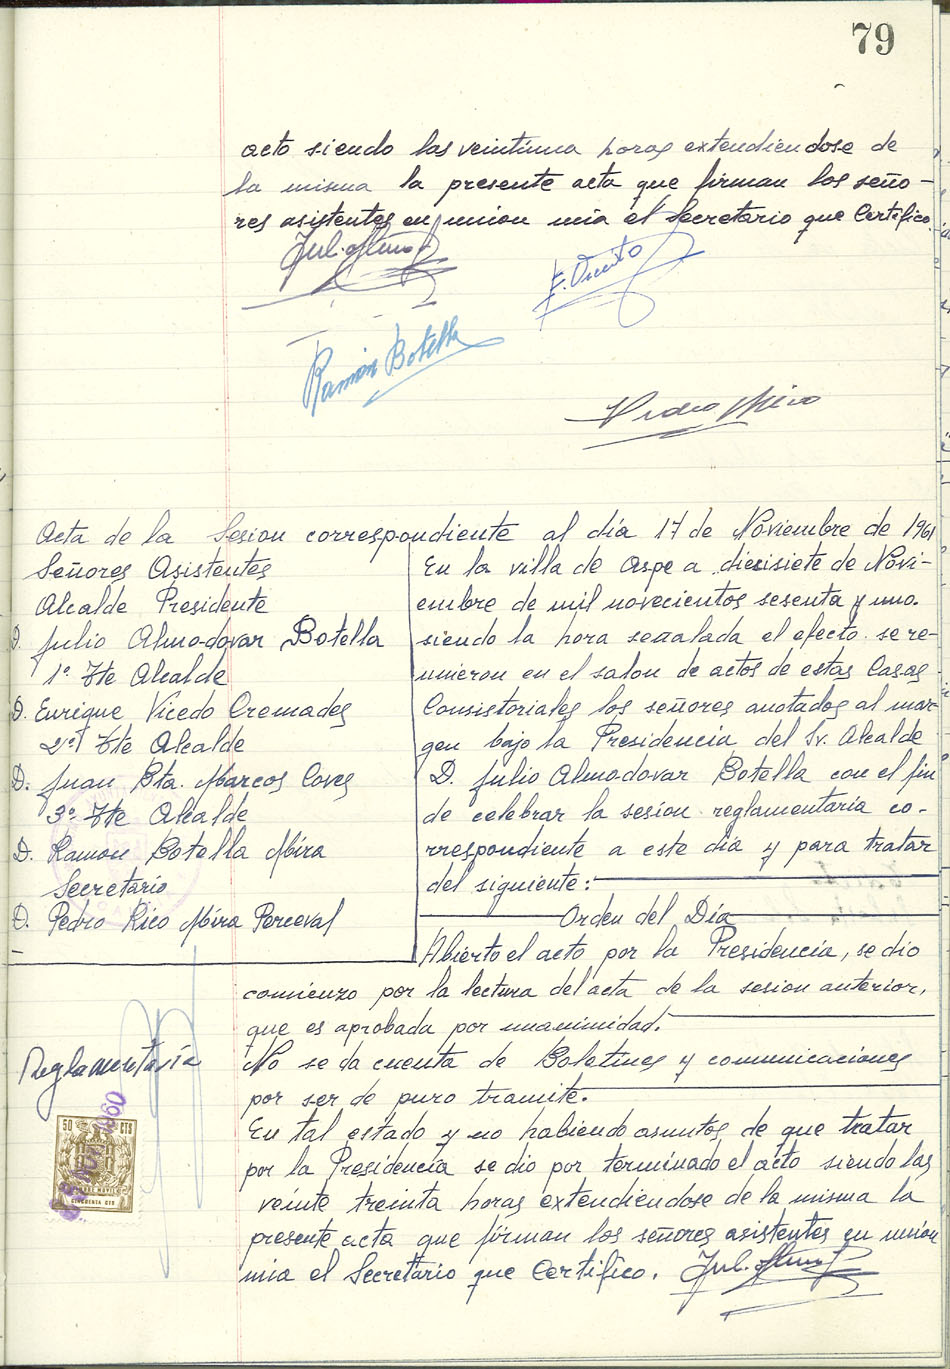 79
acto siendo las veintiuna horas extendiendose de
la misma la presente acta que firman los seño-
res asistentes en union mia el Secretario que Certifico.
Jul. Almod
E. Vicedo
Ramón Botella
Pedro Rico
Acta de la Sesion correspondiente al día 17 de Noviembre de 1961
Señores Asistentes
Alcalde Presidente
D. Julio Almodovar Botella
1º Tte Alcalde
D. Enrique Vicedo Cremades
2º Tte Alcalde
D. Juan Bta. Marcos Coves
3º Tte Alcalde
D. Ramon Botella Mira
Secretario
D. Pedro Rico Mira Perceval
En la villa de Aspe a diecisiete de Novi-
embre de mil novecientos sesenta y uno.
siendo la hora señalada el efecto se re-
unieron en el salon de actos de estas Casas
Consistoriales los señores anotados al mar-
gen bajo la Presidencia del Sr. Alcalde
D. Julio Almodovar Botella con el fin
de celebrar la sesión reglamentaria co-
rrespondiente a este día y para tratar
del siguiente:
Orden del Día
Abierto el acto por la Presidencia, se dio
comienzo por la lectura del acta de la sesion anterior,
que es aprobada por unanimidad.
No se da cuenta de Boletines y comunicaciones
por ser de puro tramite.
En tal estado y no habiendo asuntos de que tratar
por la Presidencia se dio por terminado el acto siendo las
veinte treinta horas extendiendose de la misma la
presente acta que firman los señores asistentes en union
mia el Secretario que Certifico. Jul. Almod
Reglamentaria
50 CTS
1960